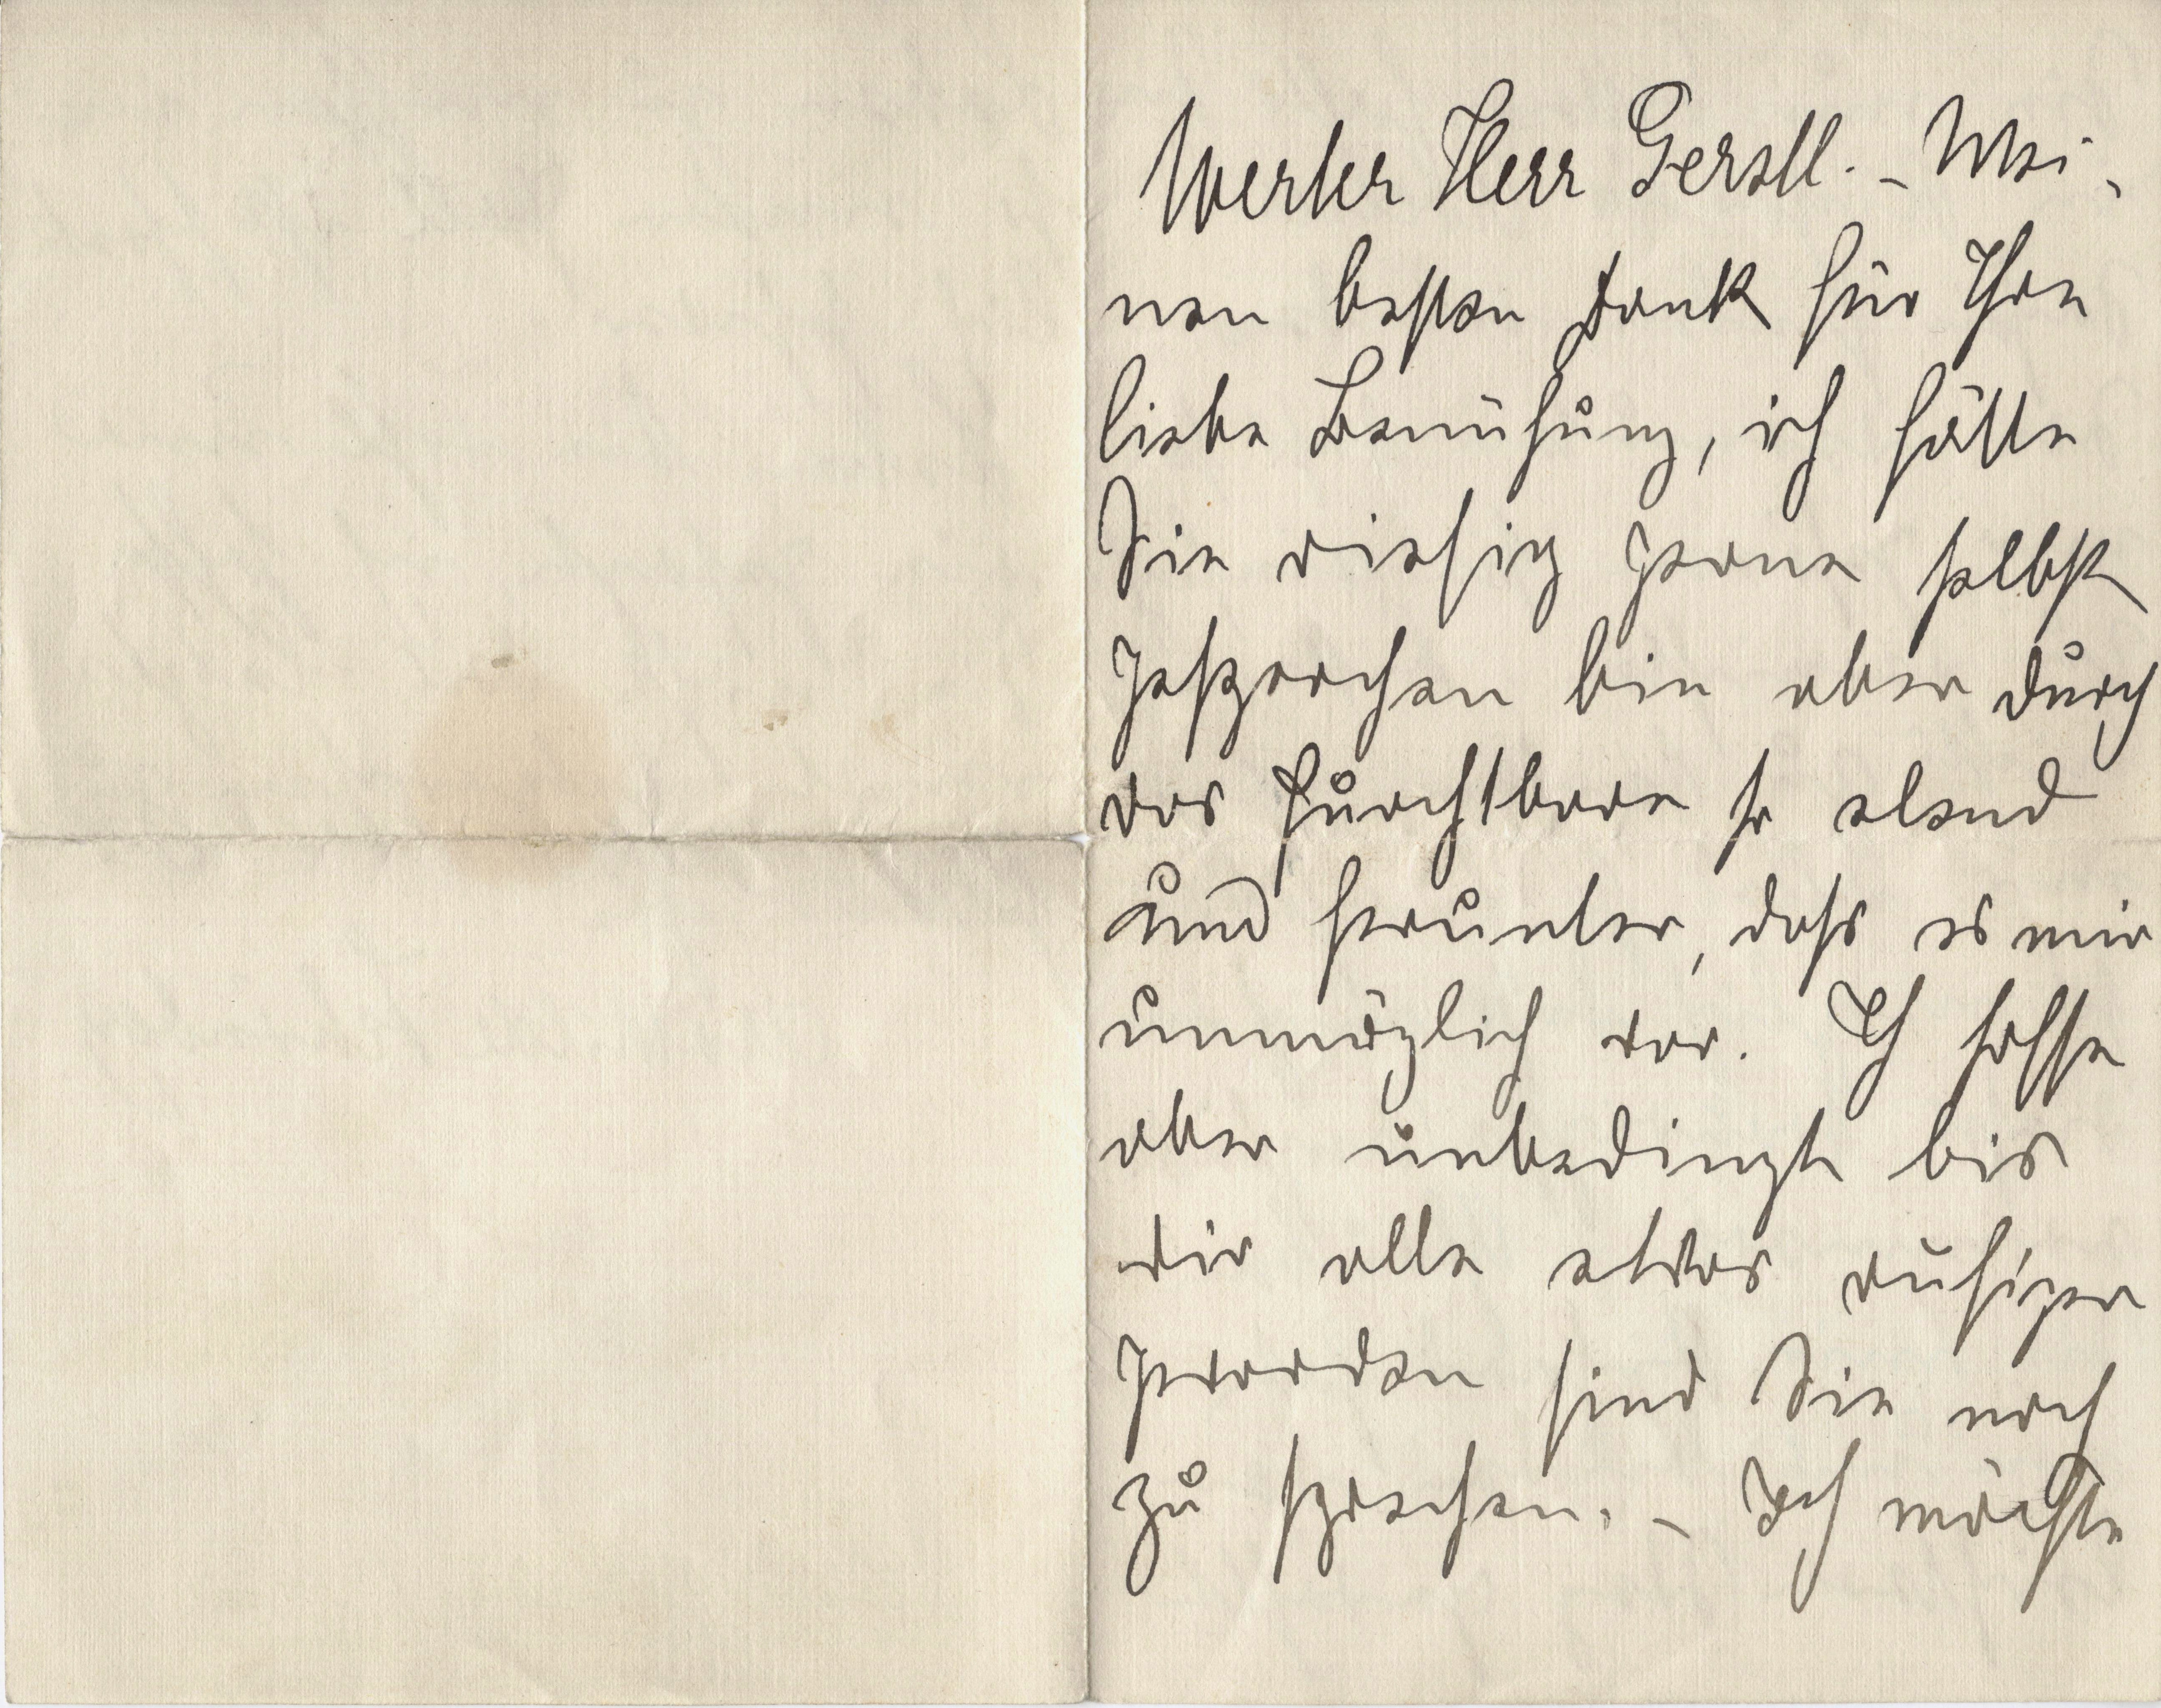 Werter Herr Gerstl. – Mei-
nen besten Dank für Ihre
liebe Bemühung, ich hätte
Sie riesig gerne selbst
gesprochen bin aber durch
das furchtbare so elend
und herunter, dass es mir
unmöglich war. Ich hoffe
aber unbedingt bis
wir alle etwas ruhiger
geworden sind Sie noch
zu sprechen. – Ich möchte